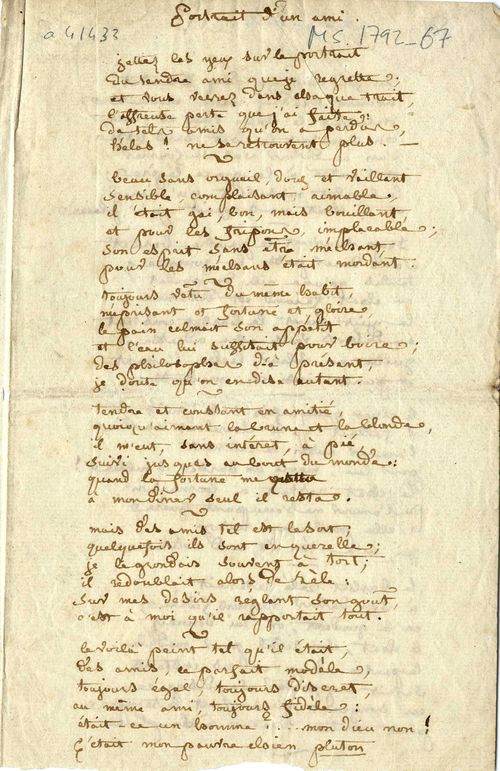 Portrait d'un ami.
a 41433
MS. 1792-67
jettez les yeux sur le portrait
du tendre ami que je regrette ;
et vous verrez dans chaque trait,
l'affreuse perte que j'ai faite :
de tels amis qu'on a perdus,
helas ! ne se retrouvent plus. —
beau sans orgueil, doux et vaillant
sensible, complaisant aimable,
il était gai, bon, mais bouillant,
et pour les fripons, implacable ;
son esprit sans être méchant,
pour les méchans était mordant.
toujours vetu du même habit,
meprisant et fortune et gloire,
le pain calmait son appétit
et l'eau lui suffisait pour boire ;
des philosophes d'à présent,
je doute qu'on en dise autant.
tendre et constant en amitié,
quoiqu'aimant la brune et la blonde,
il m'eut, sans intéret, à pié
suivi jusques au bout du monde :
quand la fortune me quitta
à mon diner seul il resta.
mais des amis tel est le sort,
quelquefois ils sont en querelle ;
je le grondais souvent à tort ;
il redoublait alors de zèle :
sur mes desirs réglant son goût,
c'est à moi qu'il rapportait tout.
le voilà peint tel qu'il était,
des amis ce parfait modèle,
toujours égal, toujours discret,
au même ami, toujours fidèle :
était-ce un homme ?.... mon dieu non !
c'était mon pauvre chien pluton